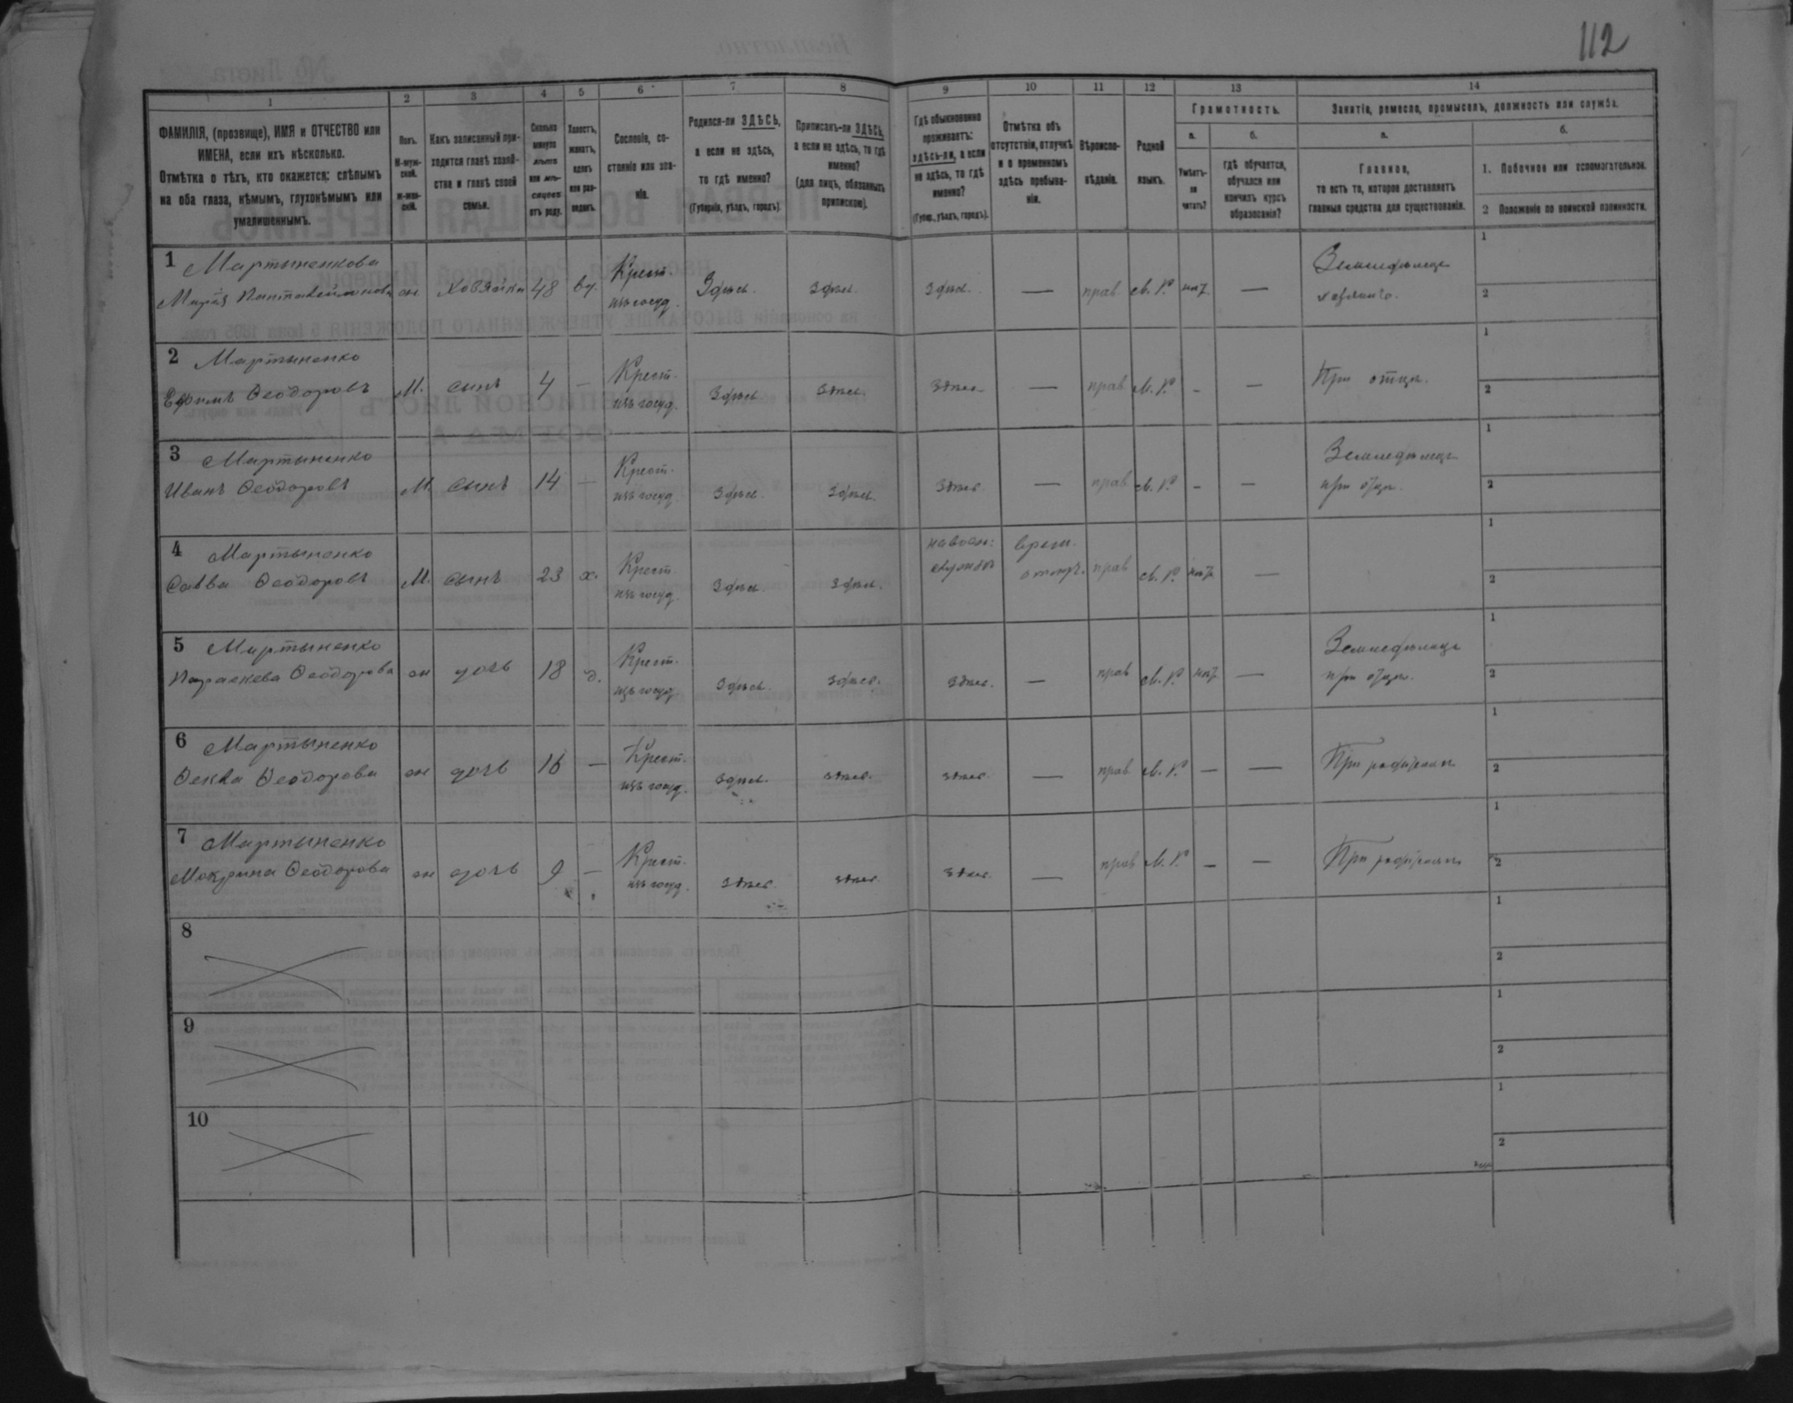 112
1
2
3
4
5
6
7
8
9
10
11
12
13
14
ФАМИЛІЯ, (прозвище), ИМЯ и ОТЧЕСТВО или
ИМЕНА, если ихъ нѣсколько.
Отмѣтка о тѣхъ, кто окажется: слѣпымъ
на оба глаза, нѣмымъ, глухонѣмымъ или
умалишеннымъ.
Полъ.
М-муж-
ской.
Ж-жен-
скій.
Какъ записанный при-
ходится главѣ хозяй-
ства и главѣ своей
семьи.
Сколько
минуло
лѣтъ
или мѣ-
сяцевъ
отъ роду.
Холостъ,
женатъ,
вдовъ
или раз-
веденъ.
Сословіе, со-
стояніе или зва-
ніе.
Родился-ли ЗДѢСЬ,
а если не здѣсь,
то гдѣ именно?
(Губернія, уѣздъ, городъ).
Приписанъ-ли ЗДѢСЬ,
а если не здѣсь, то гдѣ
именно?
(для лицъ, обязанныхъ
припиской).
Гдѣ обыкновенно
проживаетъ:
здѣсь-ли, а если
не здѣсь, то гдѣ
именно?
(Губер., уѣздъ, городъ).
Отмѣтка объ
отсутствіи, отлучкѣ
и о временномъ
здѣсь пребыва-
ніи.
Вѣроиспо-
вѣданіе.
Родной
языкъ.
Грамотность.
а.
Умѣетъ-
ли
читать?
б.
Гдѣ обучается,
обучался или
кончилъ курсъ
образованія?
Занятіе, ремесло, промыселъ, должность или служба.
а.
Главное,
то есть то, которое доставляетъ
главныя средства для существованія.
б.
1. Побочное или вспомогательное.
2 Положеніе по воинской повинности.
1 Мартыненкова
Марія Пантелеймонова жн Хозяйка 48 вд. Крест. изъ госуд. Здѣсь. Здѣсь. Здѣсь. — прав М. Р. нѣт — Земледѣлица
хозяйка.
1
2
2 Мартыненко
Ефимъ Ѳеодоровъ М. сынъ 4 — Крест. изъ госуд. Здѣсь Здѣсь. Здѣсь — прав М. Р. - — При отцѣ.
1
2
3 Мартыненко
Иванъ Ѳеодоровъ М. сынъ 14 — Крест. изъ госуд Здѣсь. Здѣсь. Здѣсь — прав М. Р. - — Земледѣлецъ
при отцѣ.
1
2
4 Мартыненко
Савва Ѳеодоровъ М. сынъ 23 х. Крест изъ госуд. Здѣсь Здѣсь. на воен: службѣ врем. прав М. Р. нѣт —
1
2
5 Мартыненко
Параскева Ѳеодорова жн дочь 18 д. Крест. изъ госуд Здѣсь Здѣсь. Здѣсь. — прав М. Р. нѣт — Земледѣлица
при отцѣ.
1
2
6 Мартыненко
Ѳекла Ѳеодорова жн дочь 16 — Крест. изъ госуд. Здѣсь. Здѣсь. Здѣсь. — прав М. Р. — — При родителяхъ
1
2
7 Мартыненко
Мокрина Ѳеодорова жн дочь 9 — Крест. изъ госуд. Здѣсь Здѣсь Здѣсь. — прав М. Р. — — При родителяхъ
1
2
8
1
2
9
1
2
10
1
2